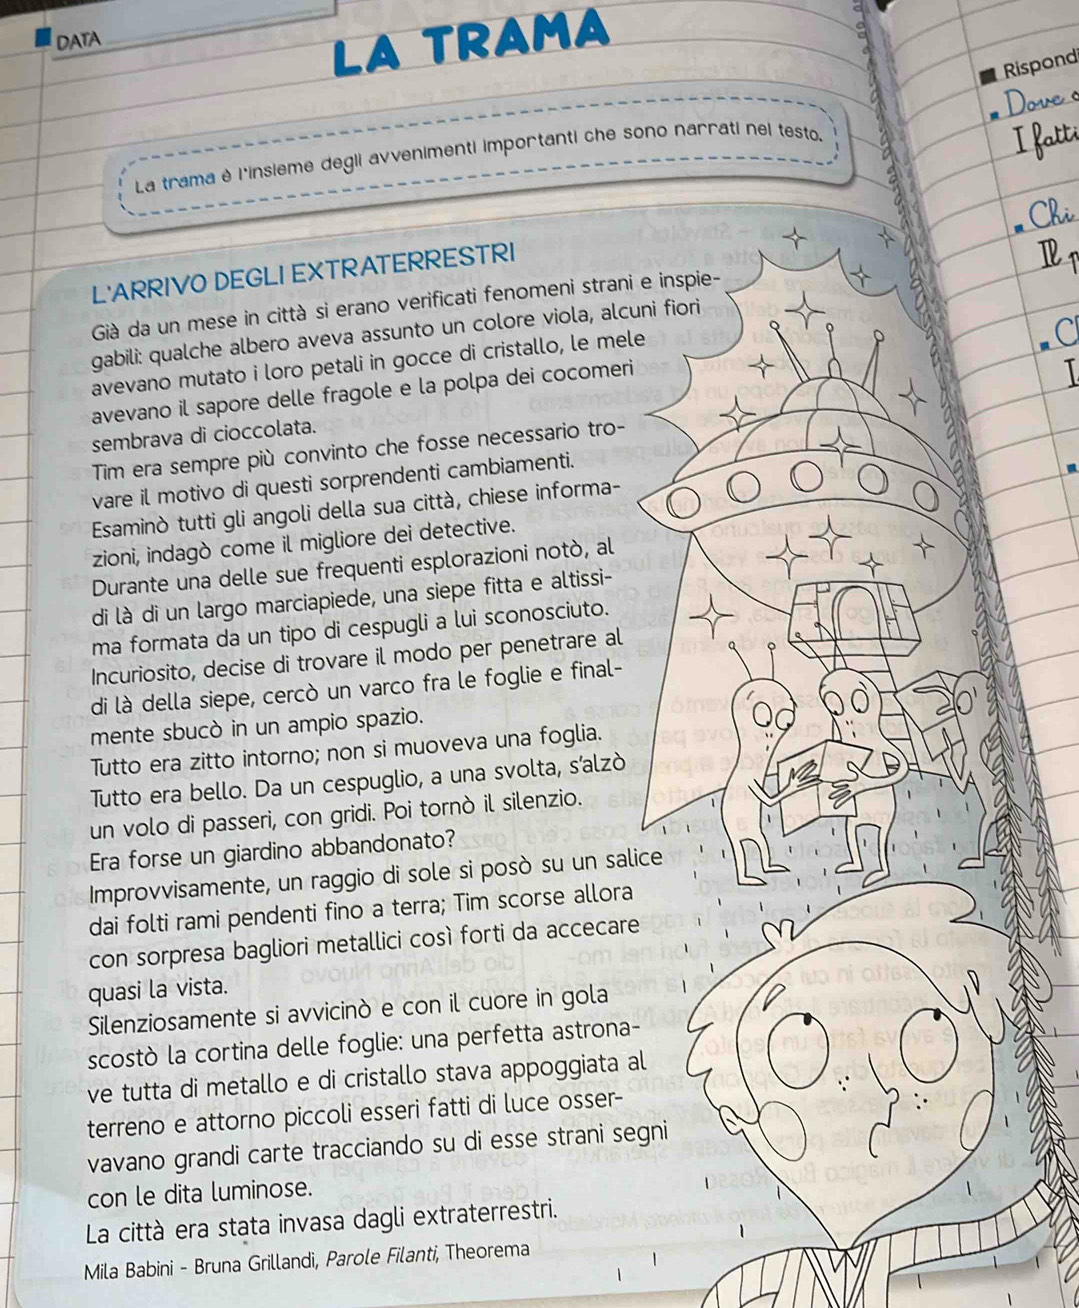 DATA
LA TRAMA
La trama è l'insieme degli avvenimenti importanti che sono narrati nel testo.
L'ARRIVO DEGLI EXTRATERRESTRI
Già da un mese in città si erano verificati fenomeni strani e inspie-
gabili: qualche albero aveva assunto un colore viola, alcuni fiori
avevano mutato i loro petali in gocce di cristallo, le mele
avevano il sapore delle fragole e la polpa dei cocomeri
sembrava di cioccolata.
Tim era sempre più convinto che fosse necessario tro-
vare il motivo di questi sorprendenti cambiamenti.
Esaminò tutti gli angoli della sua città, chiese informa-
zioni, indagò come il migliore dei detective.
Durante una delle sue frequenti esplorazioni notò, al
di là di un largo marciapiede, una siepe fitta e altissi-
ma formata da un tipo di cespugli a lui sconosciuto.
Incuriosito, decise di trovare il modo per penetrare al
di là della siepe, cercò un varco fra le foglie e final-
mente sbucò in un ampio spazio.
Tutto era zitto intorno; non si muoveva una foglia.
Tutto era bello. Da un cespuglio, a una svolta, s'alzò
un volo di passeri, con gridi. Poi tornò il silenzio.
Era forse un giardino abbandonato?
Improvvisamente, un raggio di sole si posò su un salice
dai folti rami pendenti fino a terra; Tim scorse allora
con sorpresa bagliori metallici così forti da accecare
quasi la vista.
Silenziosamente si avvicinò e con il cuore in gola
scostò la cortina delle foglie: una perfetta astrona-
ve tutta di metallo e di cristallo stava appoggiata al
terreno e attorno piccoli esseri fatti di luce osser-
vavano grandi carte tracciando su di esse strani segni
con le dita luminose.
La città era stata invasa dagli extraterrestri.
Mila Babini - Bruna Grillandi, Parole Filanti, Theorema
Rispondi
Dove
I fatti
Chi
Il